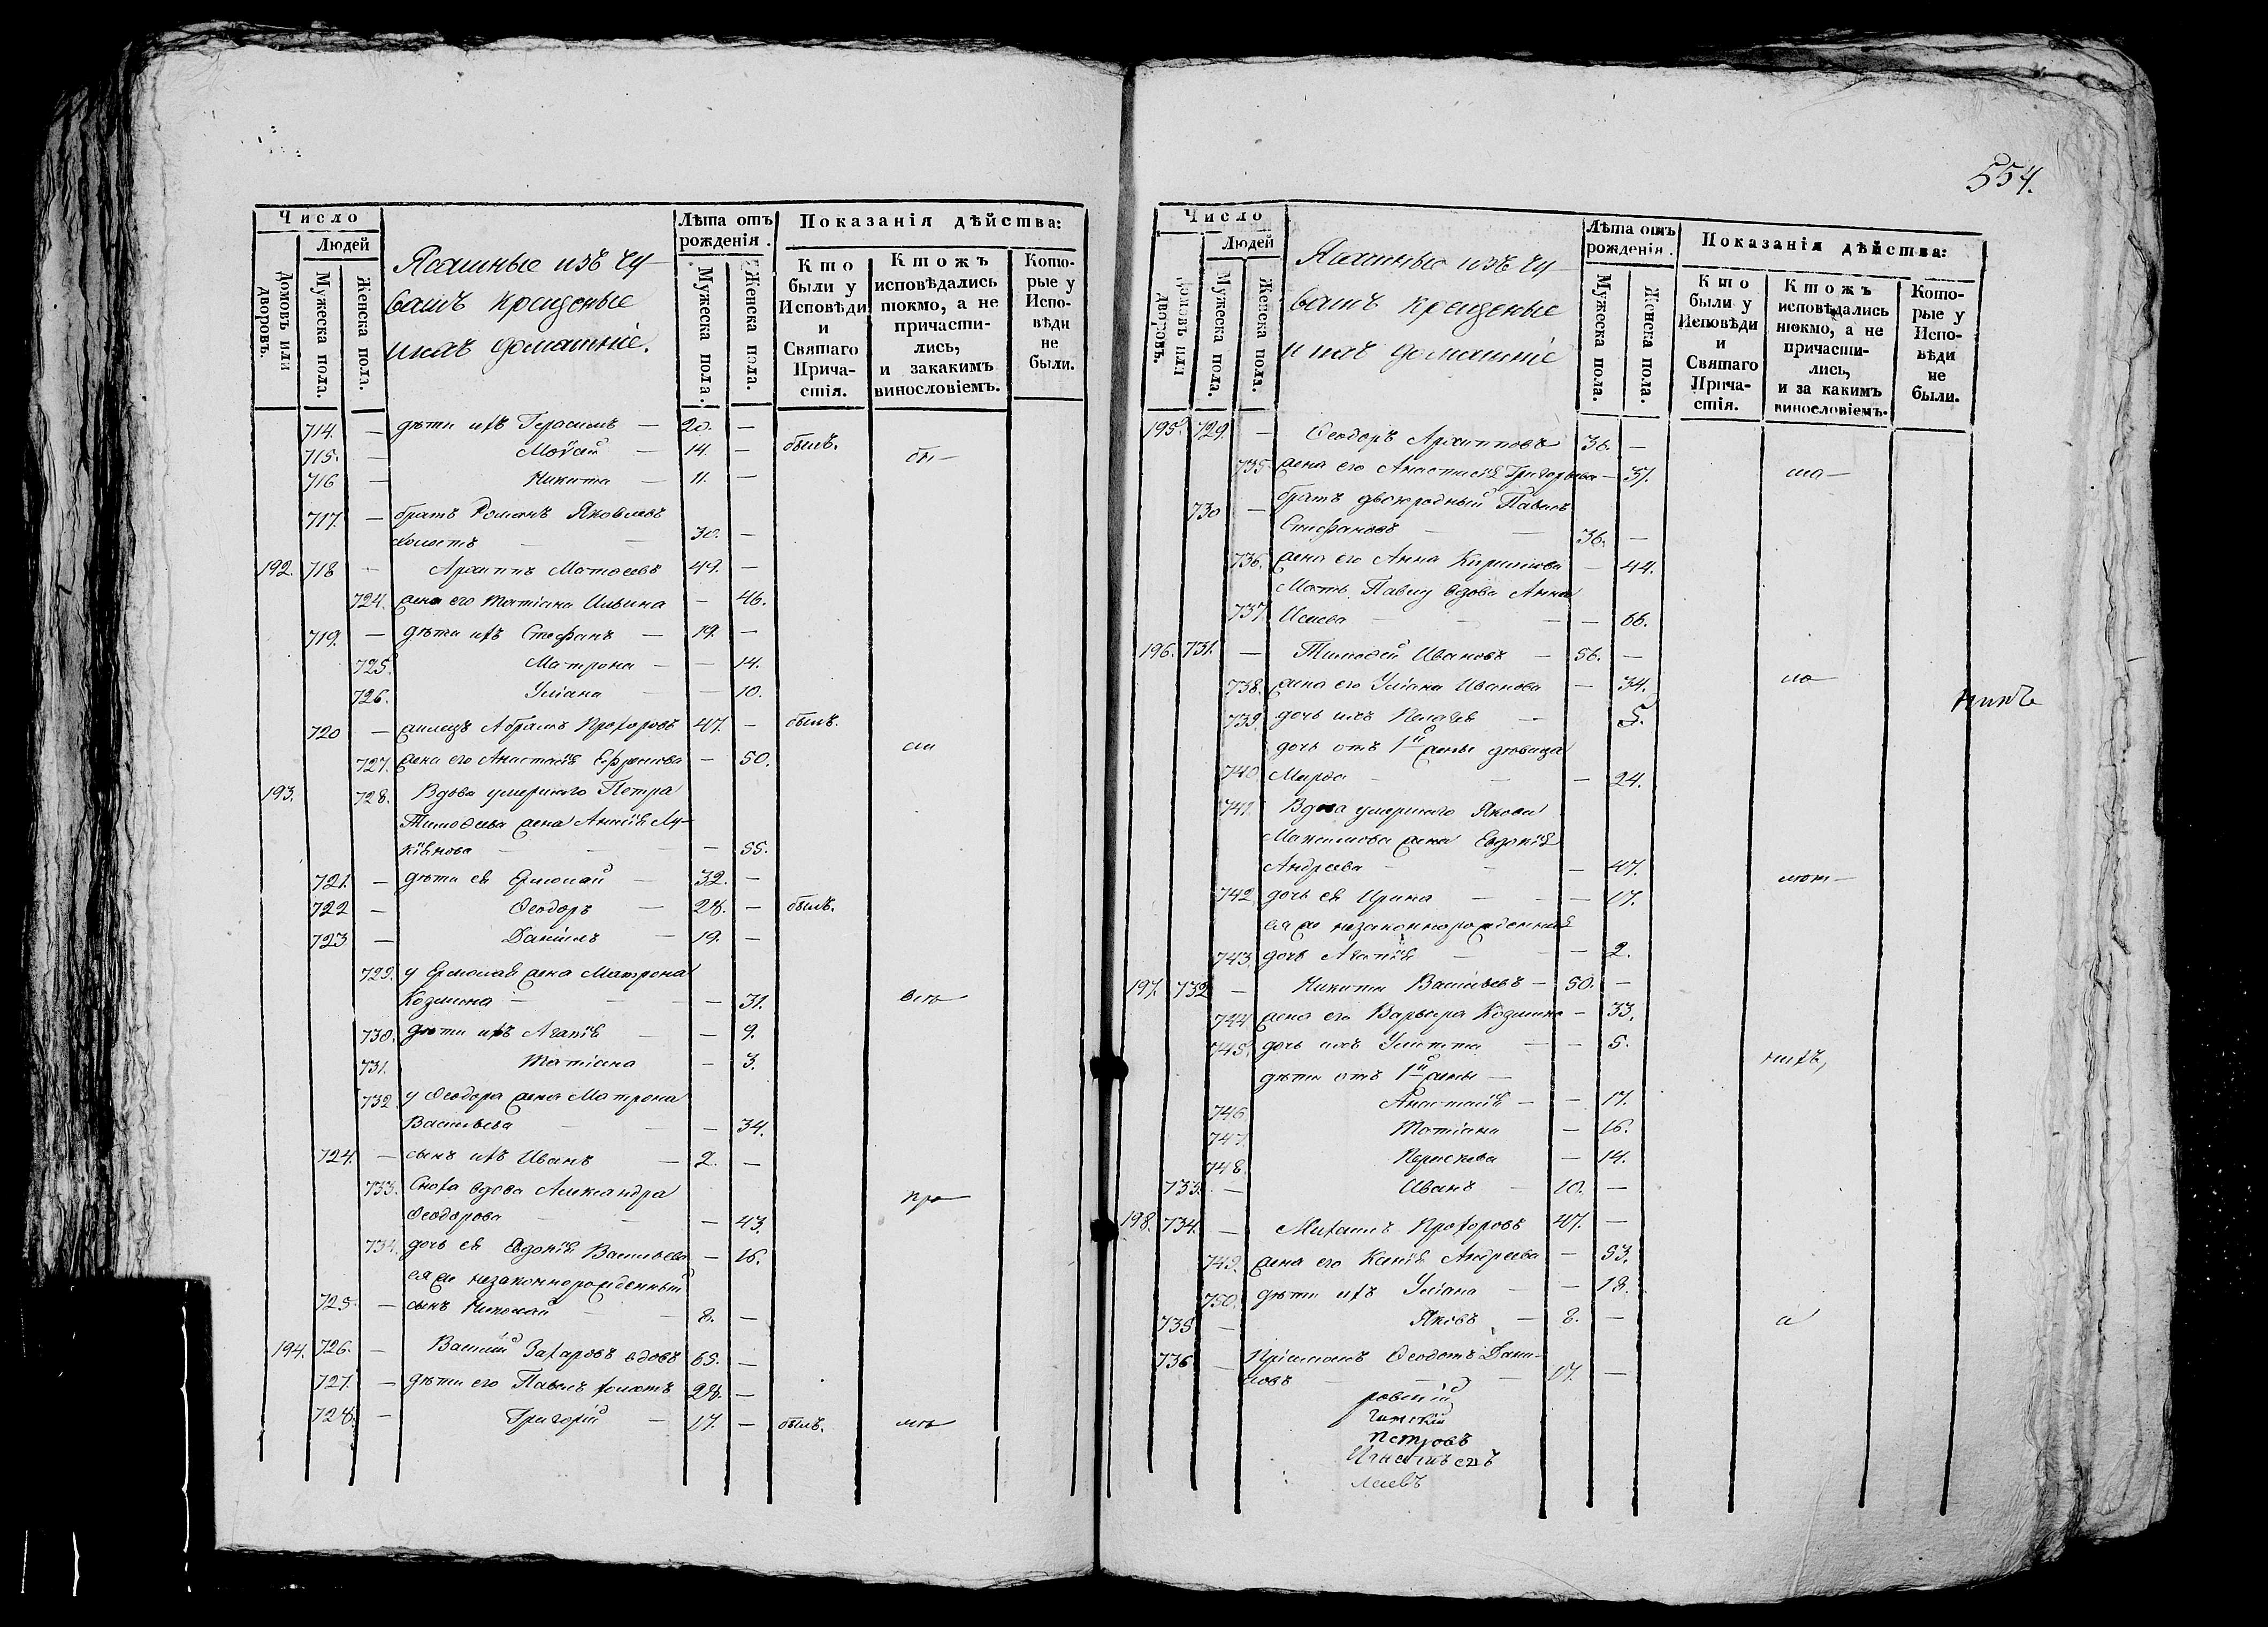 Число
Людей
Домовъ или дворовъ.
Мужеска пола.
Женска пола.
Ясашные изъ чу-
вашъ крещеные
и ихъ домашніе.
Лѣта отъ
рожденія.
Мужеска пола.
Женска пола.
Показанія дѣйства:
Кто
были у
Исповѣди
и
Святаго
Прича-
стія.
Ктожъ
исповѣдались
токмо, а не
причасти-
лись,
и закакимъ
винословіемъ.
Кото-
рые у
Испо-
вѣди
не
были.
714. — дѣти ихъ Герасимъ — 20. — былъ.
715. — Мойсей — 14. —
716 — Никита — 11. —
717. — братъ Романъ Яковлевъ
холостъ — — 30. —
192. 718 — Архиппъ Матѳеевъ 49. —
724. жена его Татіана Ильина — 46.
719. — дѣти ихъ Стефанъ — 19. —
725. Матрона — — 14.
726. Уліана — — 10.
720 — Абрамъ Прохоровъ 47. — былъ.
727. жена его Анастасія Ефремова — 50.
193. 728. Вдова умершаго Петра
Тимоѳеева жена Лу-
кіянова — — — 55.
721. — дѣти ея Ермолай — 32. —
722 — Ѳеодоръ — 28. — былъ.
723 — Даніилъ — 19. —
729. у Ермолая жена Матрона
Козмина — — — 31.
730. дѣти ихъ Агапія — — 9.
731. Татіана — 3.
732. у Ѳеодора жена Матрона
Васильева — — — 34.
724. — сынъ ихъ Иванъ — 2. —
733. Сноха вдова Александра
Ѳеодорова — — — 43.
734. дочь ея Евдокія Васильева — 16.
ея же незаконнорожденный
725. — сынъ Николай — — 8. —
194. 726. — Василій Захаровъ вдовъ 65. —
727. — дѣти его Павелъ холостъ 28. —
728. — Григорій — 17. — былъ.
554.
Число
Людей
Домовъ или дворовъ.
Мужеска пола.
Женска пола.
Ясашные изъ чу-
вашъ крещеные
и ихъ домашніе
Лѣта отъ
рожденія.
Мужеска пола.
Женска пола.
Показанія дѣйства:
Кто
были у
Исповѣди
и
Святаго
Прича-
стія.
Ктожъ
исповѣдались
токмо, а не
причасти-
лись,
и за какимъ
винословіемъ.
Кото-
рые у
Испо-
вѣди
не
были.
195. 729. — Ѳеодоръ Архипповъ 36. —
735. жена его Анастасія Григорьева — 37.
730 — братъ двоюродный Павелъ
Стефановъ — — 36. —
736. жена его Анна Кирилова — 44.
Мать Павлу вдова Анна
737. Исаева — — — — 66.
196. 731. — Тимоѳей Ивановъ — 56. —
738. жена его Уліана Иванова — 34.
739. дочь ихъ Пелагея — 5.
дочь отъ 1й жены дѣвица
740. Марѳа — — — 24.
741. Вдова умершаго Якова
Максимова жена Евдокія
Андреева — — — 47.
742. дочь ея Ирина — — — 17.
ея же незаконнорожденная
743. дочь Агапія — — — 2.
197. 732 — Никита Васильевъ — 50. —
744. жена его Варвара Козмина — 33.
745. дочь ихъ Улитта — — 5.
дѣти отъ 1й жены —
746. Анастасія — — 17.
747. Татіана — 16.
748. Параскева — 14.
733. — Иванъ — 10. —
198. 734. — Михаилъ Прохоровъ 47. —
749. жена его Ксенія Андреева — 53.
750. дѣти ихъ Уліана — — 18.
735 — Яковъ — 8. —
736 — Пріемышъ Ѳеодотъ Дани-
ловъ — — — 17. —
Петровъ